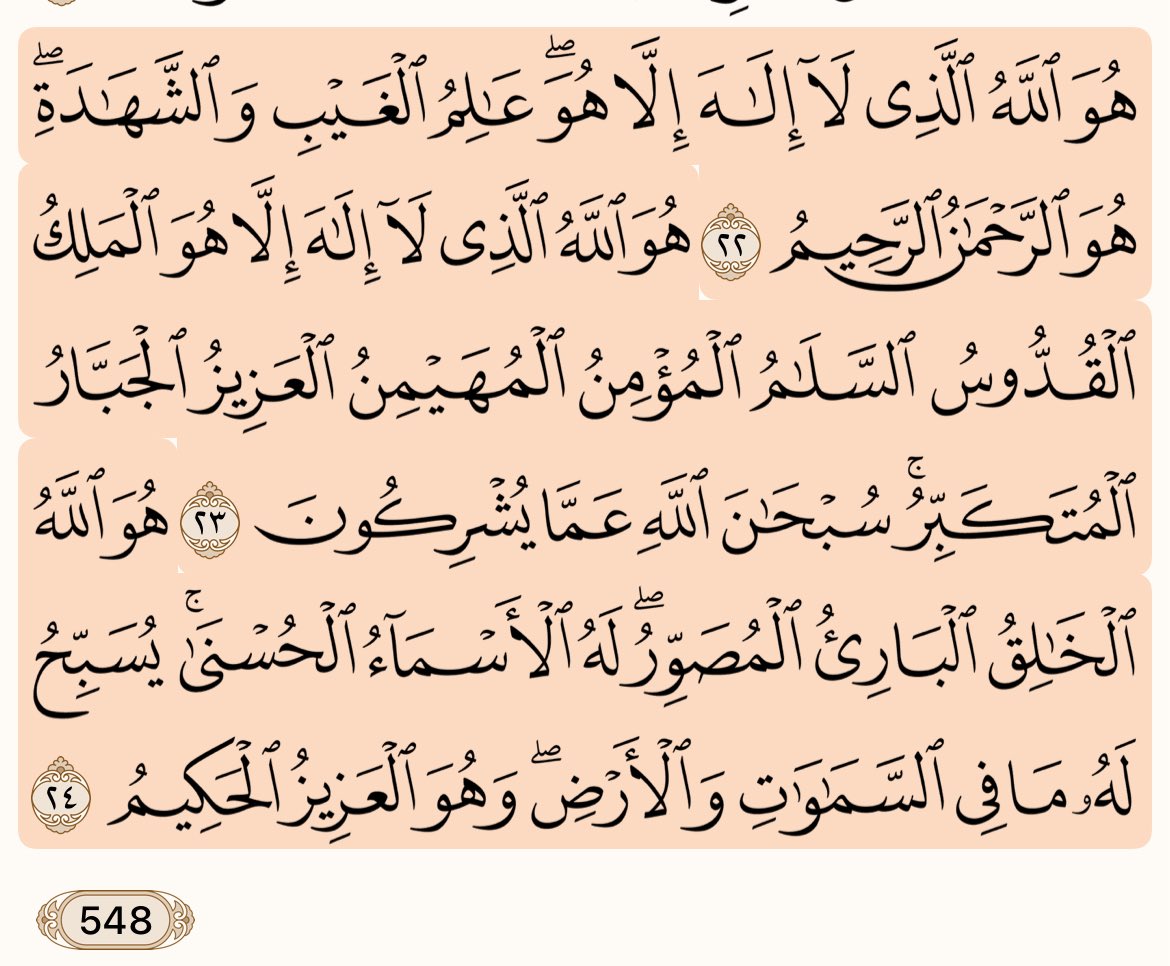 هُوَ ٱللَّهُ ٱلَّذِى لَآ إِلَـٰهَ إِلَّا هُوَ ۖ عَـٰلِمُ ٱلْغَيْبِ وَٱلشَّهَـٰدَةِ ۖ
هُوَ ٱلرَّحْمَـٰنُ ٱلرَّحِيمُ ٢٢ هُوَ ٱللَّهُ ٱلَّذِى لَآ إِلَـٰهَ إِلَّا هُوَ ٱلْمَلِكُ
ٱلْقُدُّوسُ ٱلسَّلَـٰمُ ٱلْمُؤْمِنُ ٱلْمُهَيْمِنُ ٱلْعَزِيزُ ٱلْجَبَّارُ
ٱلْمُتَكَبِّرُ ۚ سُبْحَـٰنَ ٱللَّهِ عَمَّا يُشْرِكُونَ ٢٣ هُوَ ٱللَّهُ
ٱلْخَـٰلِقُ ٱلْبَارِئُ ٱلْمُصَوِّرُ ۖ لَهُ ٱلْأَسْمَآءُ ٱلْحُسْنَىٰ ۚ يُسَبِّحُ
لَهُۥ مَا فِى ٱلسَّمَـٰوَٰتِ وَٱلْأَرْضِ ۖ وَهُوَ ٱلْعَزِيزُ ٱلْحَكِيمُ ٢٤
548